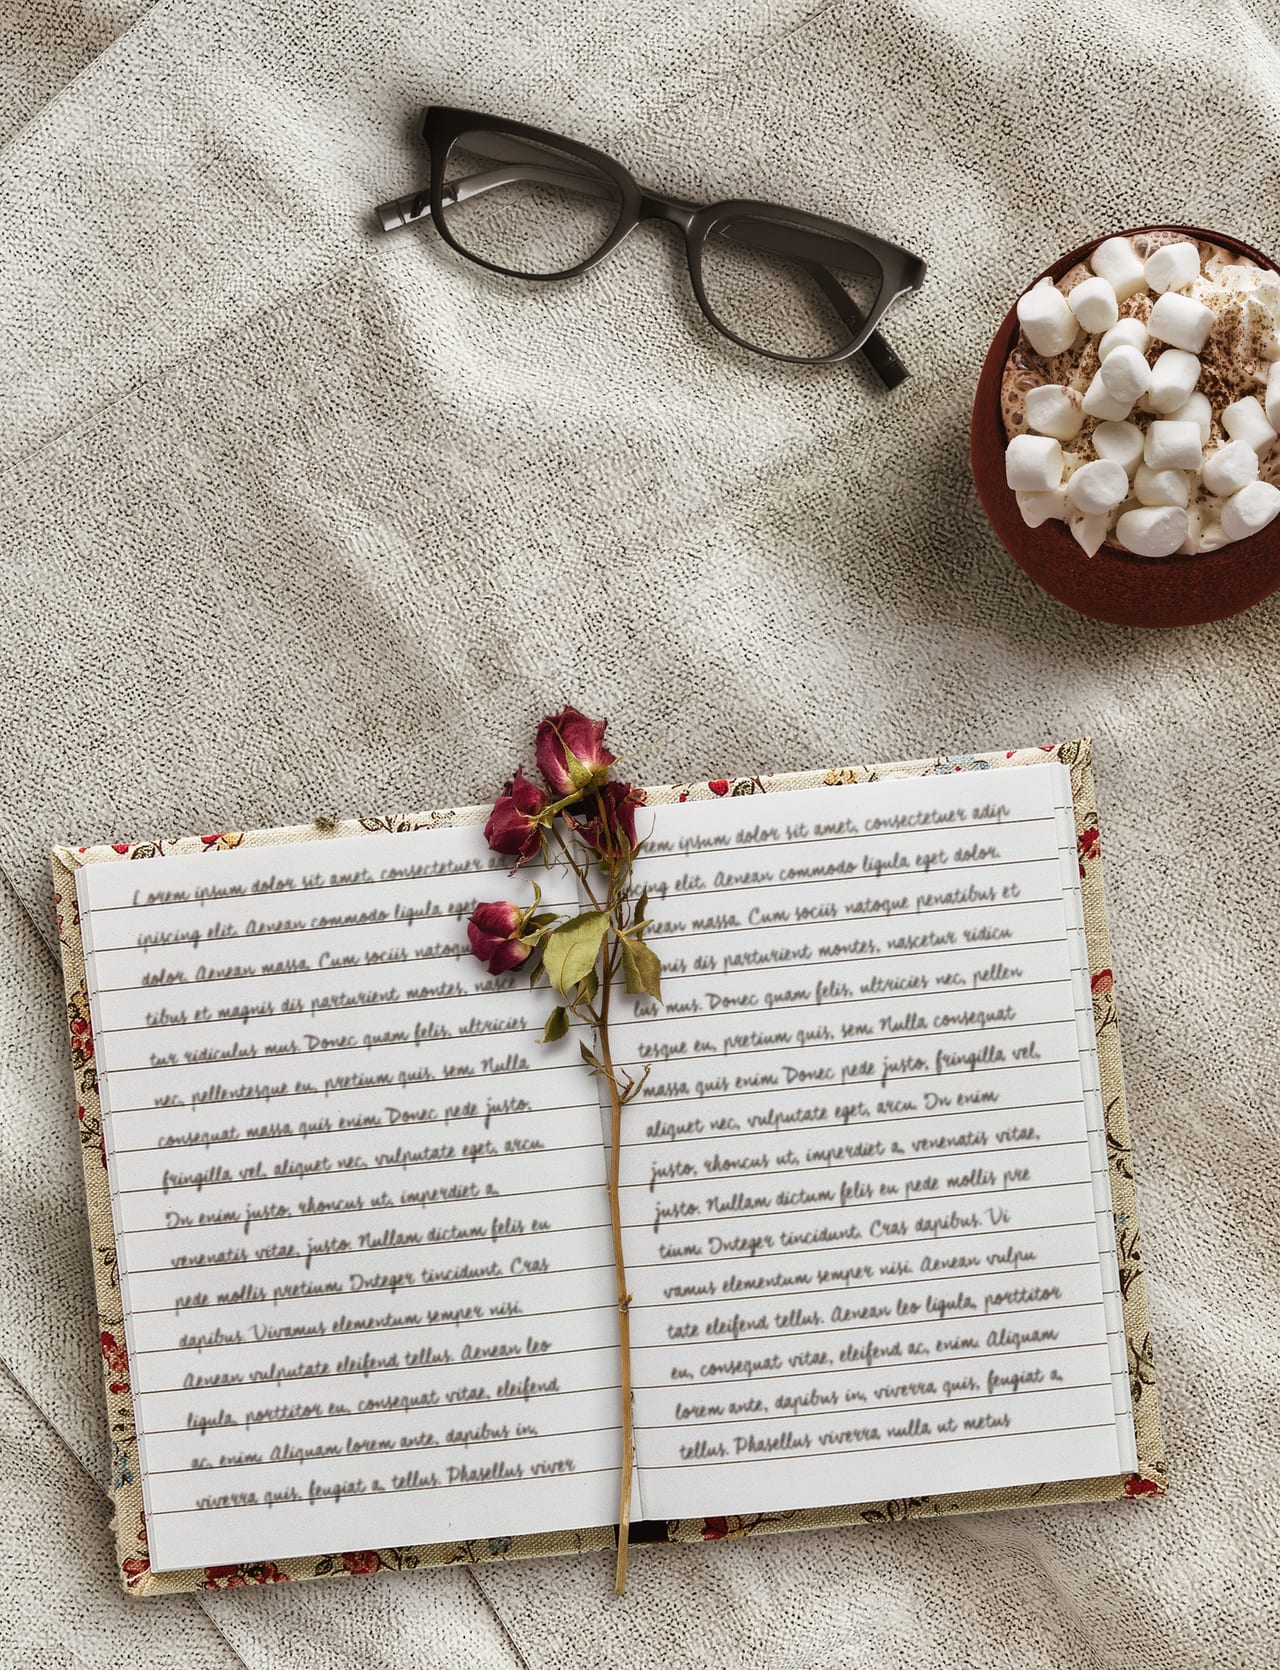 Lorem ipsum dolor sit amet, consectetuer
ipiscing elit. Aenean commodo ligula eget
dolor. Aenean massa. Cum sociis natoqu
tibus et magnis dis parturient montes, nasce
tur ridiculus mus. Donec quam felis, ultricies
nec, pellentesque eu, pretium quis, sem. Nulla
consequat massa quis enim. Donec pede justo,
fringilla vel, aliquet nec, vulputate eget, arcu.
In enim justo, rhoncus ut, imperdiet a,
venenatis vitae, justo. Nullam dictum felis eu
pede mollis pretium. Integer tincidunt. Cras
dapibus. Vivamus elementum semper nisi.
Aenean vulputate eleifend tellus. Aenean leo
ligula, porttitor eu, consequat vitae, eleifend
ac, enim. Aliquam lorem ante, dapibus in,
viverra quis, feugiat a, tellus. Phasellus viver
rem ipsum dolor sit amet, consectetuer adip
iscing elit. Aenean commodo ligula eget dolor.
nean massa. Cum sociis natoque penatibus et
gnis dis parturient montes, nascetur ridicu
lus mus. Donec quam felis, ultricies nec, pellen
tesque eu, pretium quis, sem. Nulla consequat
massa quis enim. Donec pede justo, fringilla vel,
aliquet nec, vulputate eget, arcu. In enim
justo, rhoncus ut, imperdiet a, venenatis vitae,
justo. Nullam dictum felis eu pede mollis pre
tium. Integer tincidunt. Cras dapibus. Vi
vamus elementum semper nisi. Aenean vulpu
tate eleifend tellus. Aenean leo ligula, porttitor
eu, consequat vitae, eleifend ac, enim. Aliquam
lorem ante, dapibus in, viverra quis, feugiat a,
tellus. Phasellus viverra nulla ut metus